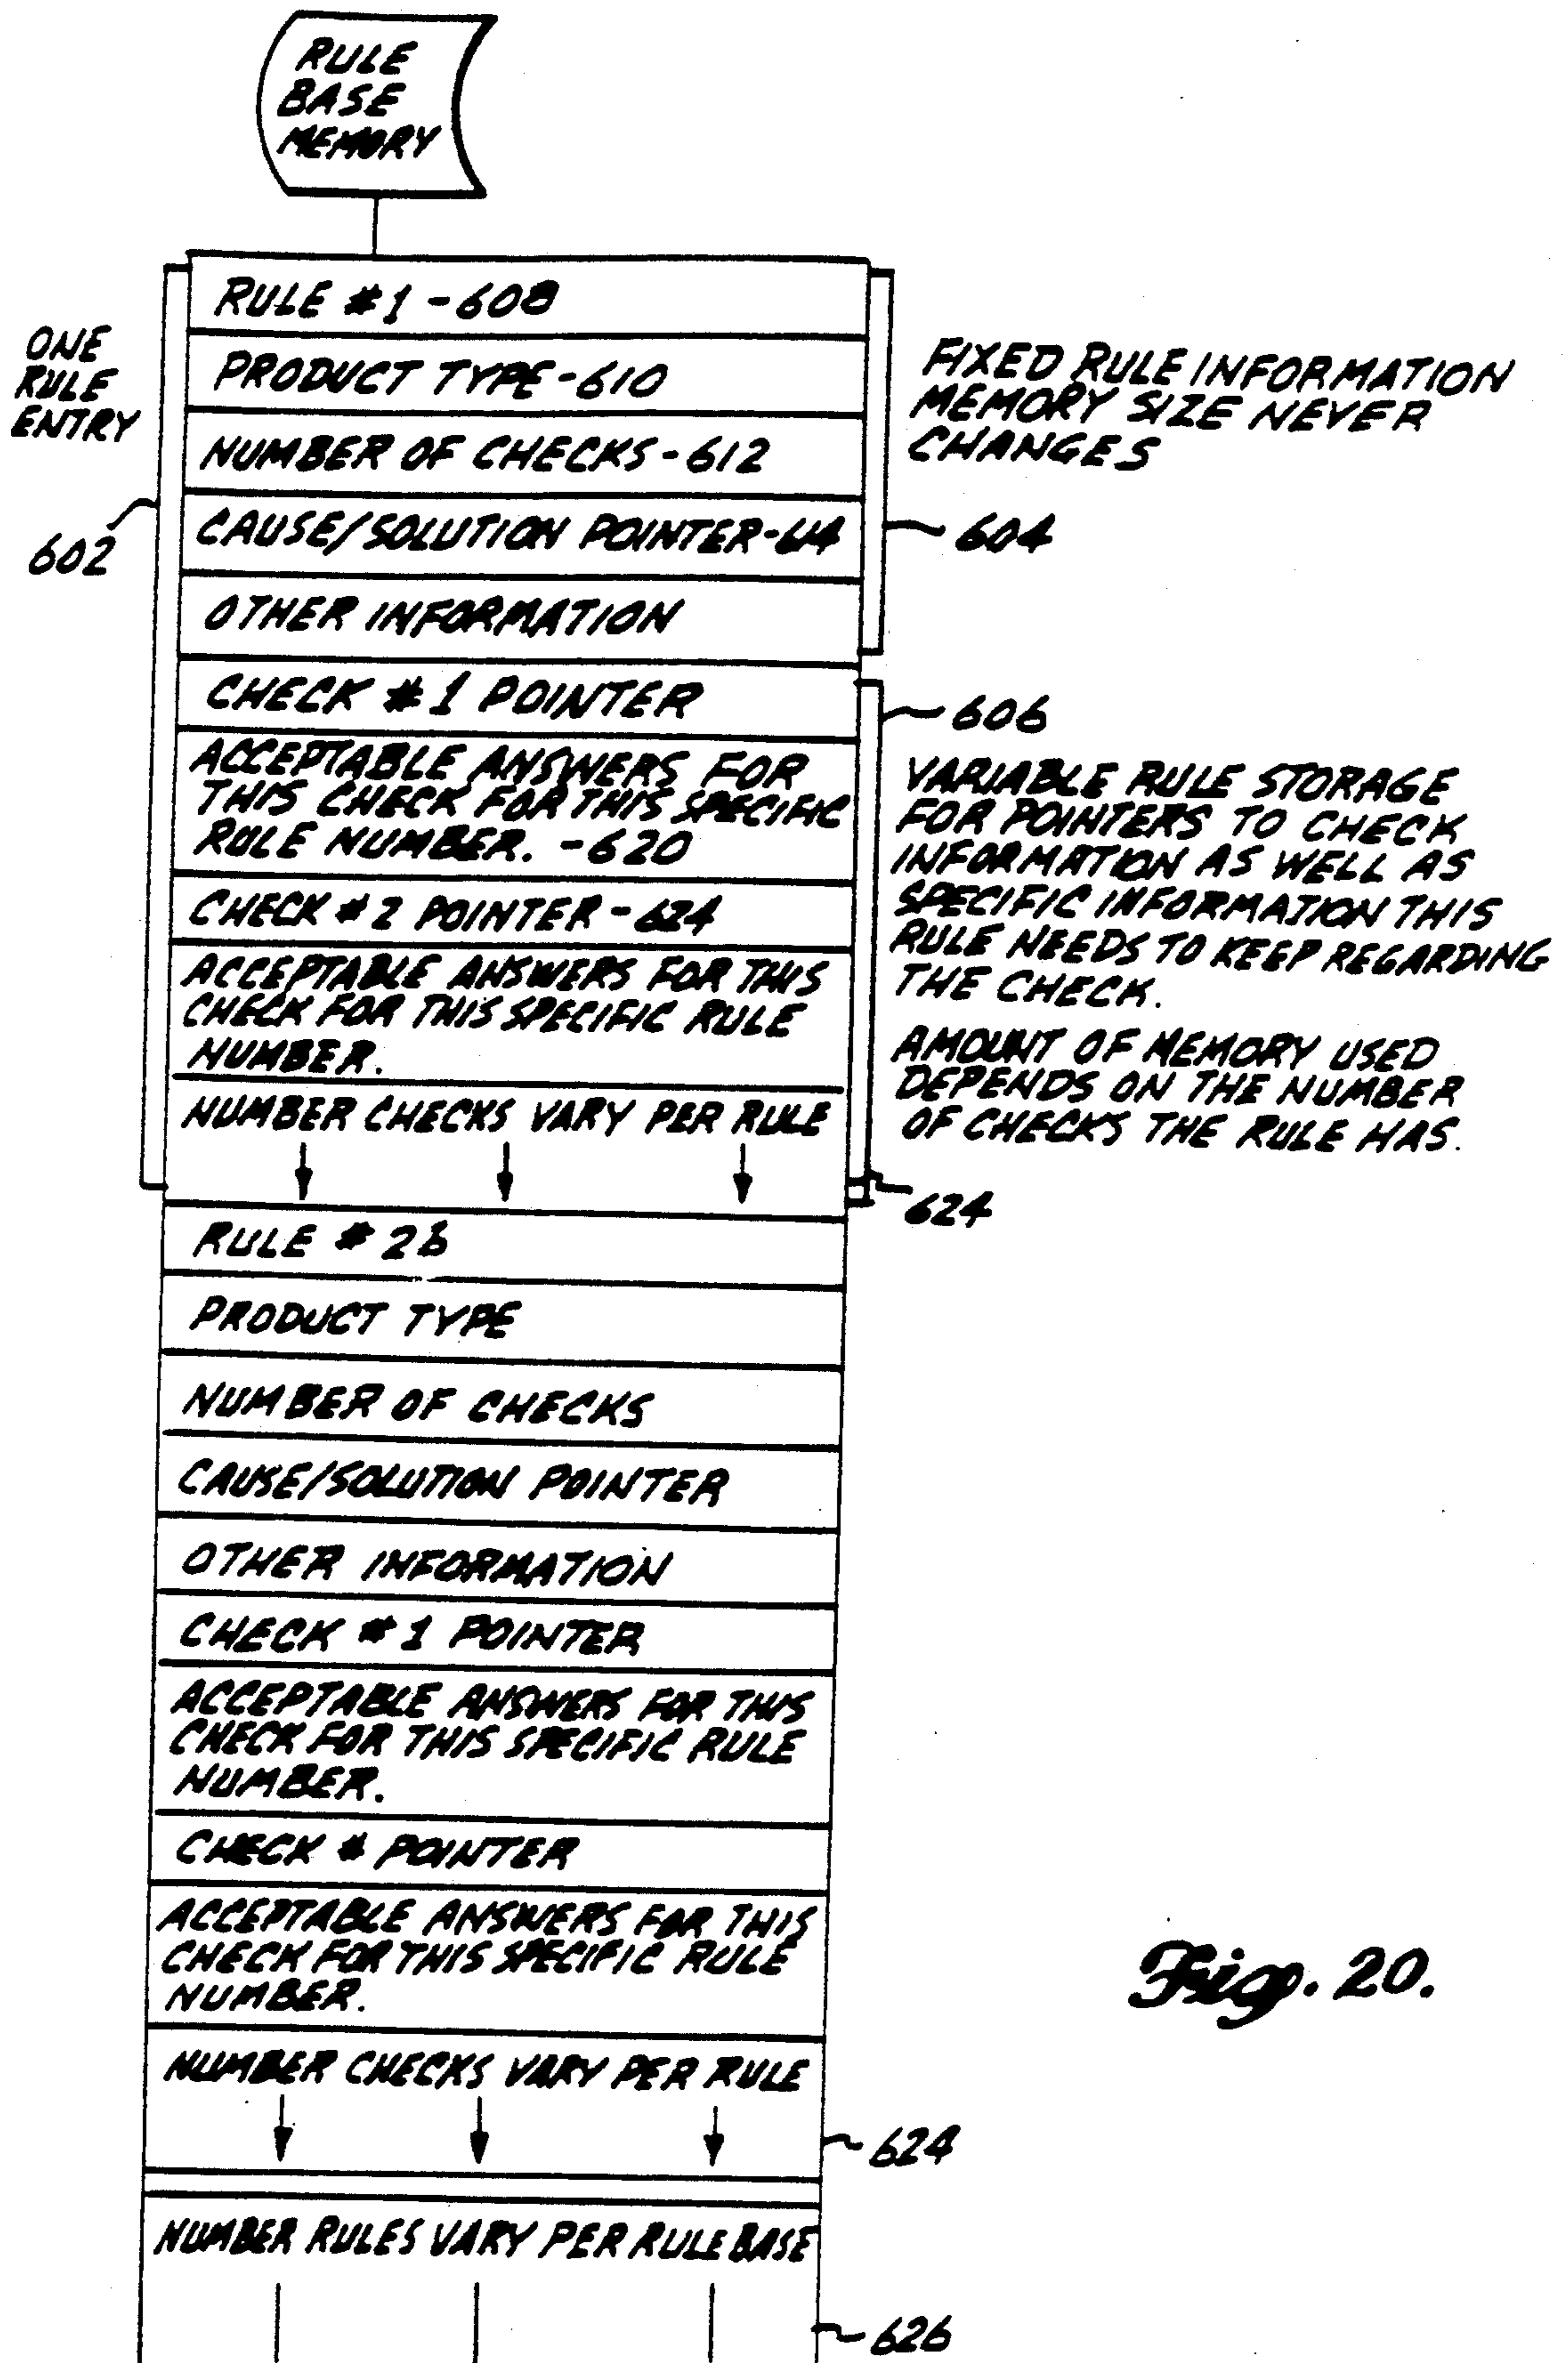 RULE
BASE
MEMORY
ONE
RULE
ENTRY
602
RULE #1 - 608
PRODUCT TYPE - 610
NUMBER OF CHECKS - 612
CAUSE/SOLUTION POINTER - 614
OTHER INFORMATION
FIXED RULE INFORMATION
MEMORY SIZE NEVER
CHANGES
604
CHECK #1 POINTER
ACCEPTABLE ANSWERS FOR
THIS CHECK FOR THIS SPECIFIC
RULE NUMBER. - 620
CHECK #2 POINTER - 624
ACCEPTABLE ANSWERS FOR THIS
CHECK FOR THIS SPECIFIC RULE
NUMBER.
NUMBER CHECKS VARY PER RULE
606
VARIABLE RULE STORAGE
FOR POINTERS TO CHECK
INFORMATION AS WELL AS
SPECIFIC INFORMATION THIS
RULE NEEDS TO KEEP REGARDING
THE CHECK.
AMOUNT OF MEMORY USED
DEPENDS ON THE NUMBER
OF CHECKS THE RULE HAS.
624
RULE #
PRODUCT TYPE
NUMBER OF CHECKS
CAUSE/SOLUTION POINTER
OTHER INFORMATION
CHECK #1 POINTER
ACCEPTABLE ANSWERS FOR THIS
CHECK FOR THIS SPECIFIC RULE
NUMBER.
CHECK # POINTER
ACCEPTABLE ANSWERS FOR THIS
CHECK FOR THIS SPECIFIC RULE
NUMBER.
NUMBER CHECKS VARY PER RULE
624
NUMBER RULES VARY PER RULE BASE
626
Fig. 20.